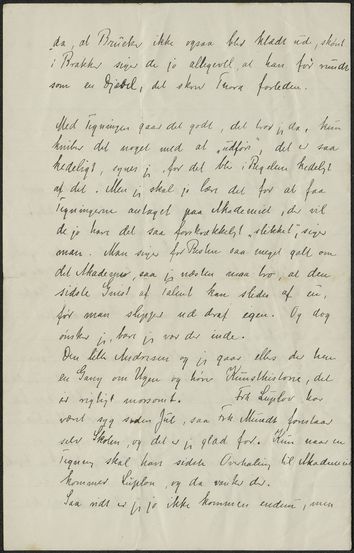 da, at Brücker ikke ogsaa blev klædt ud, skønt
i Brakker siger de jo alligevel, at han før rundt
som en Djævel, det skrev Thora forleden.
Med Tegningen gaar det godt, det tror jeg da, kun
kniber det noget med at "udføre", det er saa
kedeligt, synes jeg, for det blir i Regelen kedeligt
af det. Men jeg skal jo lære det for at faa
Tegningerne antaget paa Akademiet, der vil
de jo have det saa forskrækkeligt "slikket" siger
man. Man siger for Resten saa meget galt om
det Akademi, saa jeg næsten maa tro, at den
sidste Gnist af Talent kan slides af én,
før man slipper ud draf igen. Og dog
ønsker jeg, bare jeg var der inde.
Den lille Andersen og jeg gaar ellers der hen
en Gang om Ugen og hører Kunsthistorie, det
er rigtigt morsomt. Frk Luplau har
været syg siden Jul, saa Frk Mundt forestaar
selv Skolen, og det er jeg glad for. Kun naar en
Tegning skal have sidste Overhaling til Akademiet
kommer Luplau, og da venter de.
Saa vidt er jeg jo ikke kommen endnu, men